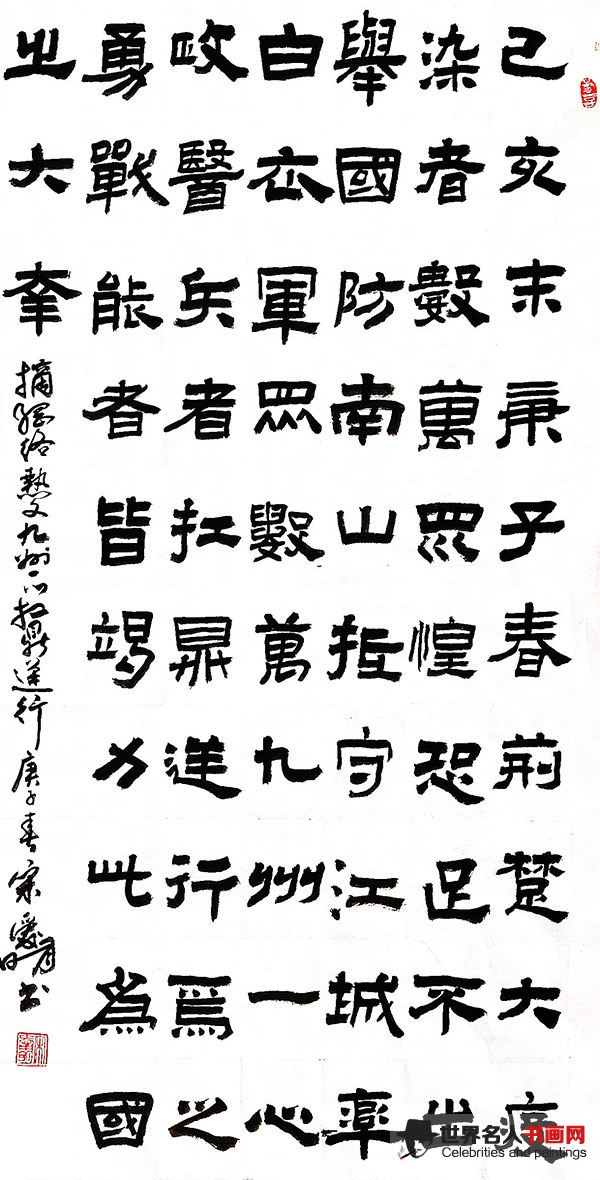 己亥末庚子春荊楚大疫
染者數萬眾惶恐足不出
舉國防南山拒守江城率
白衣軍眾數萬九州一心
政醫兵者扛鼎逆行爲之
勇戰能者皆竭力此爲國
之大幸
摘網絡熱文九州一心扛鼎逆行 庚子春宋 書
世界名人书画网
Celebrities and paintings